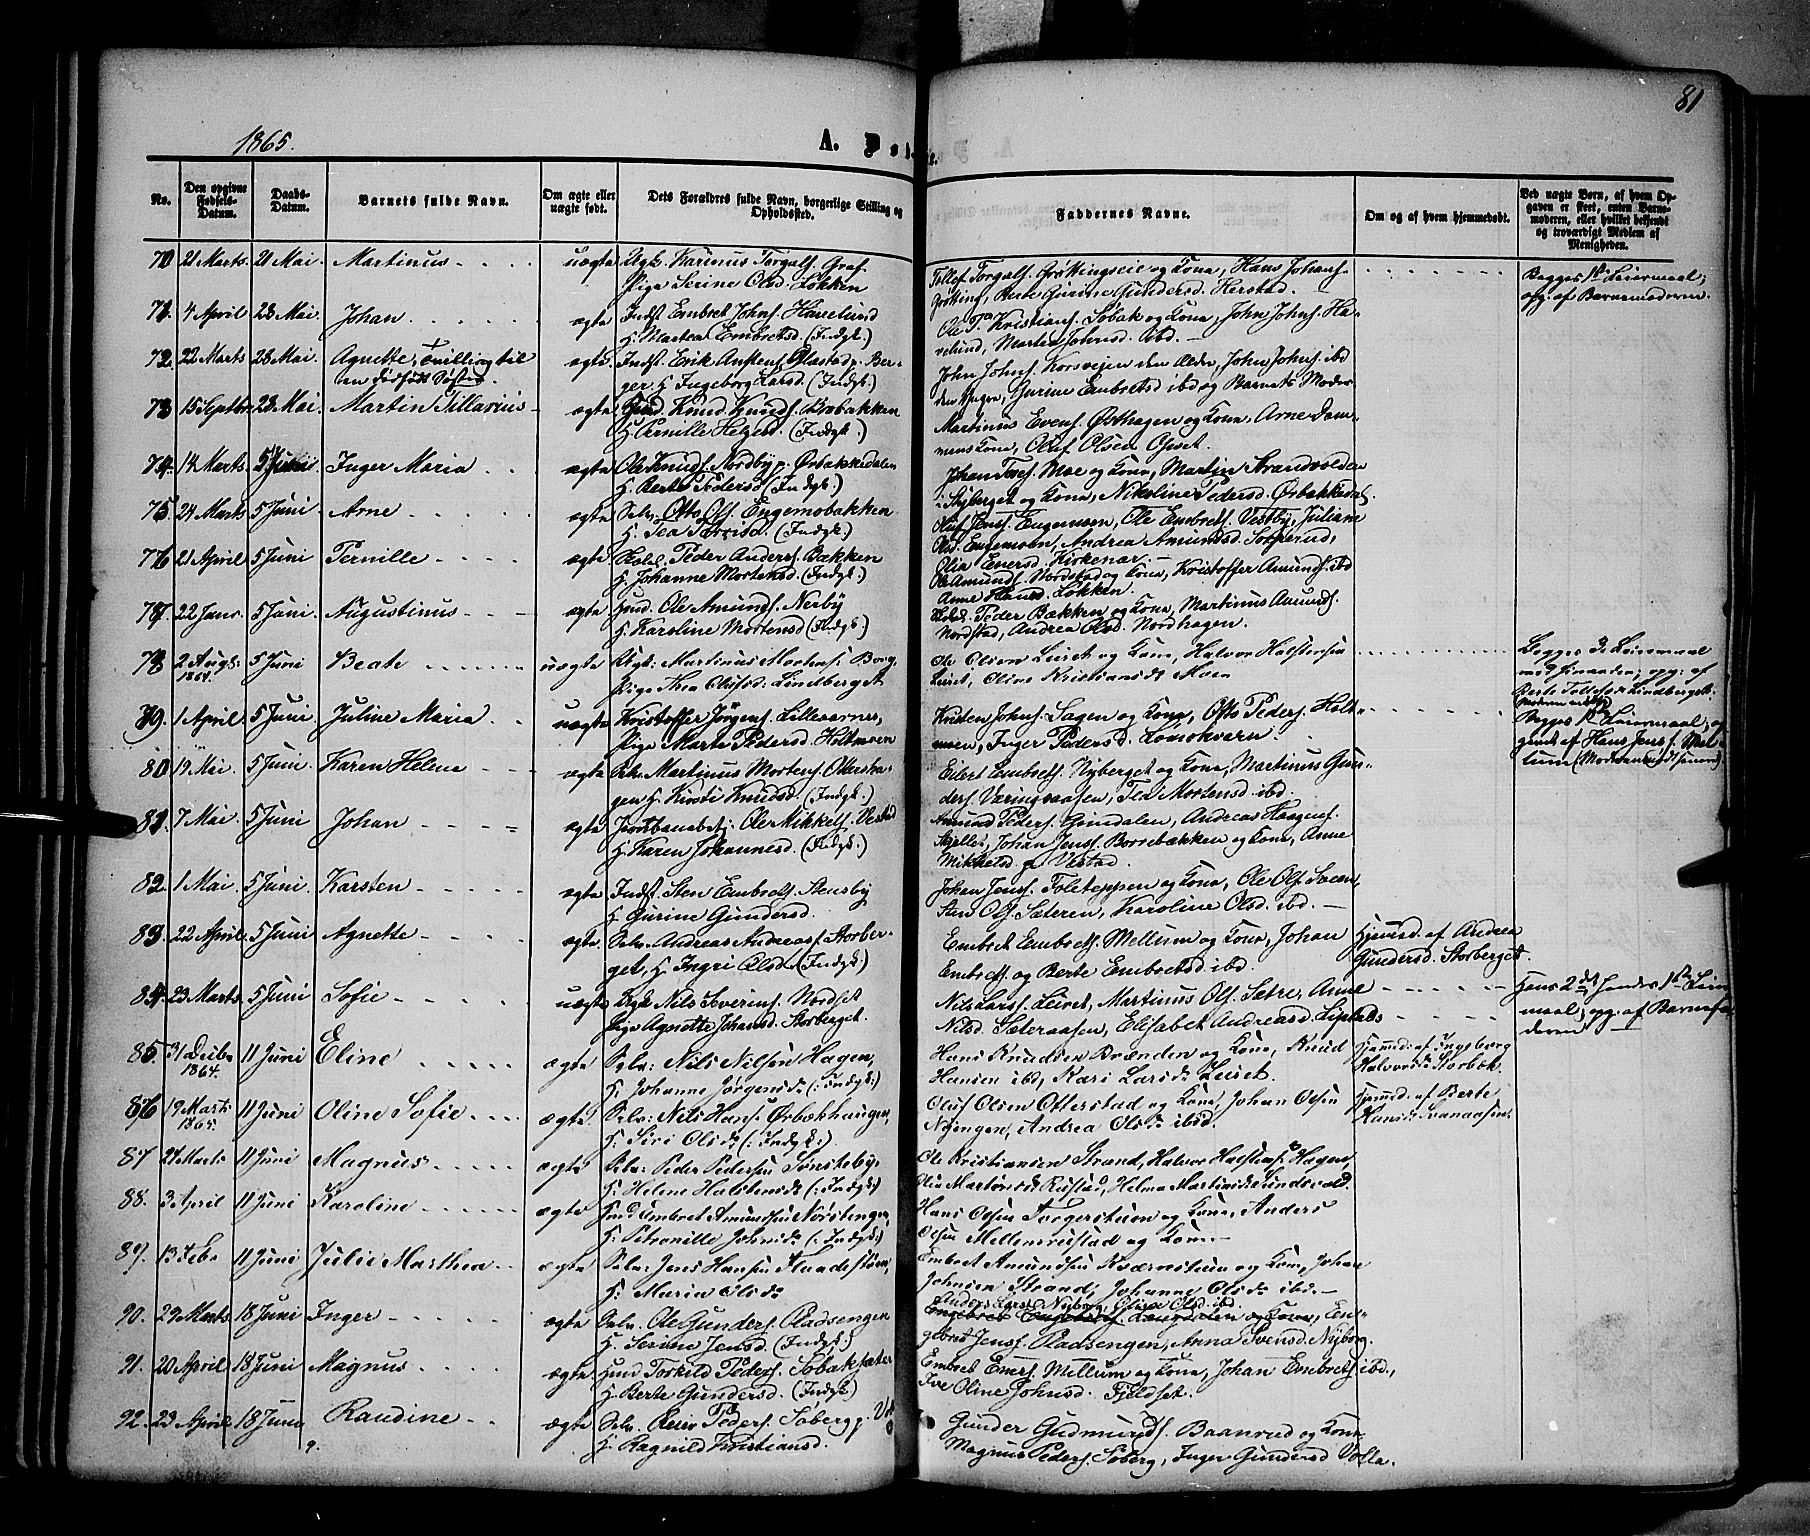 81
1865.
A. Døbte.
No.
Den opgivne Fødsels-Datum.
Daabs-Datum.
Barnets fulde Navn.
Om ægte eller uægte født.
Dets Forældres fulde Navn, borgerlige Stilling og Opholdssted.
Faddernes Navne.
Om og af hvem hjemmedøbt.
Ved uægte Børn, af hvem Opgaven er skeet, enten Barnemoderen, eller hvilket bekjendt og troværdigt Medlem af Menigheden.
70. 21 Marts. 21 Mai. Martinus uægte Ugk. Karinus Torgals. Graf
Pige Serine Olsd. Løkken
Tollef Torgals. Grøttingseie og Kone, Hans Johans.
Grøtting, Berte Gurine Gundersd. Herstad.
Begges 1ste Leiermaal;
opg. af Barnemoderen.
71. 4 April 28 Mai. Johan ægte Indst. Embret Johns. Havelund
H. Martea Embretsd. (Indgk.)
Ole T. Kristians. Sobak og Kone, John Johns. Ha-
velund, Martia Johnsd. ibd.
72. 22 Marts 28 Mai. Agnette, Tvilling til ægte. Indst. Erik Anstens. Glastad p. Ber-
en dødfødt Søster. get. H. Ingeborg Larsd. (Indgk.)
John Johns. Korsvejen den Ældre, John Johns. ibd
den Yngre, Gurine Embretsd ibd og Barnets Moder
73. 15 Septbr. 28 Mai. Martin Tillarius ægte Husd. Knud Knuds. Brobakken
H. Pernille Helgesd. (Indgk.)
Martinus Evens. Østhagen og Kone, Arne Dam-
mens Kone, Oluf Olsen Opset.
74. 14 Marts 5 Juni Inger Maria ægte Ole Knuds. Nordby p. Ørbakkedalen
H. Berte Pedersd. (Indgk.)
Johan Tores. Moe og Kone, Martin Strandvolden
i Nyberget og Kone, Nikoline Pedersd. Ørbakkedal.
75. 24 Marts 5 Juni Arne ægte Selv. Otto Ols. Engemobakken
H. Tea Torrisd. (Indgk.)
Oluf Jens. Engemoen, Ole Embrets. Vestby, Juliane
Olsd. Engemoen, Andrea Amundsd. Sorperud,
Olia Enersd. Kirkenær
76. 21 April 5 Juni Pernille ægte Hold. Peder Anders. Bakken
H. Johanne Mortensd. (Indgk.)
Ole Amunds. Nordstad og Kone, Kristoffer Amunds. ibd
Anne Hansd. Løkken.
77. 22 Janr. 5 Juni. Augustinus ægte Husd. Ole Amunds. Nerby
H. Karoline Mortensd (Indgk.)
Hold. Peder Bakken og Kone, Martinus Amunds.
Nordstad, Andrea Olsd. Nordhagen.
78. 2 Aug. 1864. 5 Juni Beate uægte Ugk: Martinus Mortens: Borg,
Pige Thea Olufsd: Lindberget
Ole Olsen Leiret og Kone, Halvor Halstensen
Leiret, Oline Kristiansd. Moen
Begges 3. Leiermaal
med hinanden; opg: af
Berte Tollefsd. Lindberget
79. 1 April. 5 Juni. Juline Maria uægte Kristoffer Jørgens. Lillevarnes,
Pige Marte Pedersd. Holtmoen
Kristen Johns. Sagen og Kone, Otto Peders. Holt-
moen, Inger Pedersd. Lomokværn
Begges 1ste Leiermaal, op-
givet af Hans Jens.
80. 19 Mai. 5 Juni. Karen Helene ægte Selv. Martinus Mortens. Ottersha-
gen H. Kirsti Knudsd. (Indgk.)
Eilert Embrets. Nyberget og Kone, Martinus Gun-
ders. Væringsaasen, Tea Mortensd. ibd.
81. 7 Mai. 5 Juni Johan ægte Jernbanebetj. Ole Mikkels. Vestad
H. Karen Johannesd. (Indgk.)
Amund Peders. Grindalen, Andreas Haagens.
Skjelle, Johan Jens. Borrebakken og Kone, Anne
Mikkelsd. p. Vestad.
82. 1 Mai 5 Juni. Karsten ægte Indst. Sten Embrets. Stensby
H. Gurine Gundersd.
Johan Jens. Toletoppen og Kone, Ole Ols. Sveen,
Sten Ols. Sæteren, Karoline Olsd. ibd.
83. 22 April. 5 Juni Agnette ægte. Selv. Andreas Andreas. Storber-
get, H. Ingri Olsd. (Indgk.)
Embret Embrets. Mellum og Kone, Johan
Embrets og Berte Embretsd ibd.
Hjemd. af Andrea
Gundersd. Storberget.
84. 23 Marts. 5 Juni. Sofie uægte Ugk Nils Iverins. Nordset
Pige Agnette Johansd. Storberget.
Nils Lars. Leiret, Martinus Ols. Sætre, Anne
Nilsd. Sæteraasen, Elisabet Andreasd. Lipstads
Hans 2det, hendes 1ste Leier-
maal; opg. af Barnefa-
deren
85. 31 Decbr. 1864. 11 Juni Eline ægte Selv: Nils Nilsen Hagen,
H. Johanne Jørgensd. (: Indgk:)
Hans Knudsen Brænden og Kone, Knud
Hansen ibd, Kari Larsd. Leiret.
Hjemmd: af Ingeborg
Halvorsd. Storbæk.
86. 19 Marts 1865. 11 Juni Oline Sofie ægte Selv: Nils Hans. Ørbækhaugen,
H: Siri Olsd. (: Indgk:)
Oluf Olsen Otterstad og Kone, Johan Olsen
Nyengen, Andrea Olsd. ibd.
Hjemmd. af Berte
Hansd. Svenaasen.
87. 27 Marts 11 Juni Magnus ægte Selv: Peder Pedersen Sønsteby,
H: Helene Halstensd. (: Indgk:)
Ole Kristiansen Strand, Halvor Halstens. Hagen,
Olia Martinsd. Rustad, Helma Martinsd. Lindsvold.
88. 3 April 11 Juni Karoline ægte Husd Embret Amundsen Nørstengen,
H: Petronille Johnsd. (: Indgk:)
Hans Olsen Torgerstuen og Kone, Anders
Olsen Mellemrustad og Kone.
89. 13 Febr 11 Juni Julie Marthea ægte Selv: Jens Hansen Flaadestøen,
H: Maria Olsd.
Embret Amundsen Kværnstuen og Kone, Johan
Johnsen Strand, Johanne Olsd. ibd.
90. 29 Marts 18 Juni Inger ægte Selv. Ole Gunders. Pladsengen
H. Serine Jensd. (Indgk.)
Anders Larsen Nyborg, Eline Olsd. ibd.
gebret Jens. Pladsengen, Anna Svensd. Nyborg.
91. 20 April. 18 Juni Magnus ægte Husd Torkild Peders. Sobaksæter
H. Berte Gundersd. (Indgk.)
Embret Eners. Mellum og Kone, Johan Embrets. ibd.,
Eve Oline Johnsd. Fjeldset.
92. 23 April. 18 Juni Randine ægte Selv. Reier Peders. Søberg p. Vol
H. Ragnild Kristiansd.
Gunder Gudmunds. Baanrud og Kone
Magnus Peders. Søberg, Inger Gundersd Volla.
9.